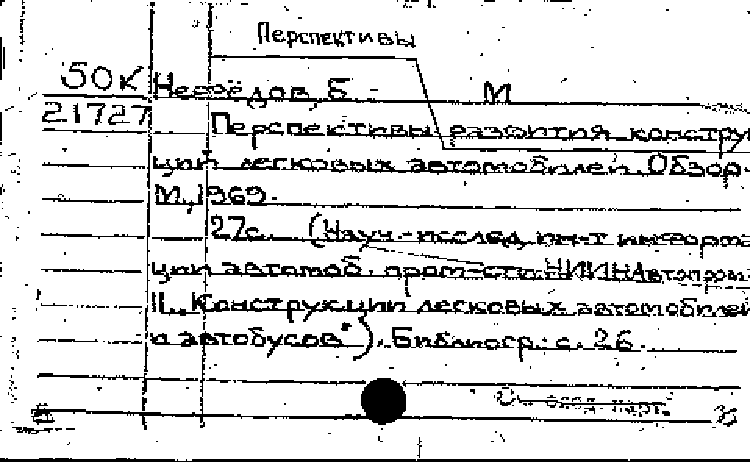 Перспективы
50К Нефёдов, Б. М
21727 Перспективы развития констру
ции легковых автомобилей. Обзор.
М., 1969.
27с. (Науч.-исслед. ин-т информа
ции автомоб. пром-сти. НИИНАвтопром
II. „Конструкции легковых автомобилей
и автобусов"). Библиогр.: с. 26.